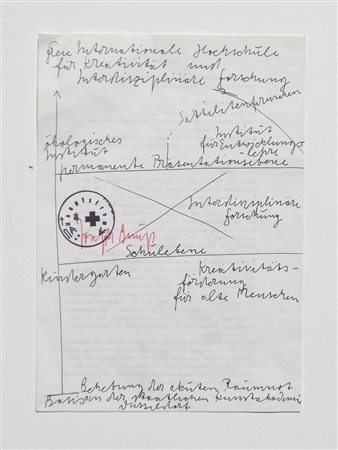 Freie Internationale Hochschule
für Kreativität und
Interdisziplinäre Forschung
Satelitenformen
ökologisches
Institut
Institut
für Entwicklungs
lehre
permanente Präsentationsebene
Interdisziplinäre
Forschung
Joseph Beuys
Schulebene
Kindergarten
Kreativitäts-
förderung
für alte Menschen
Behebung der akuten Raumnot
Basis an der staatlichen Kunstakademie
Düsseldorf